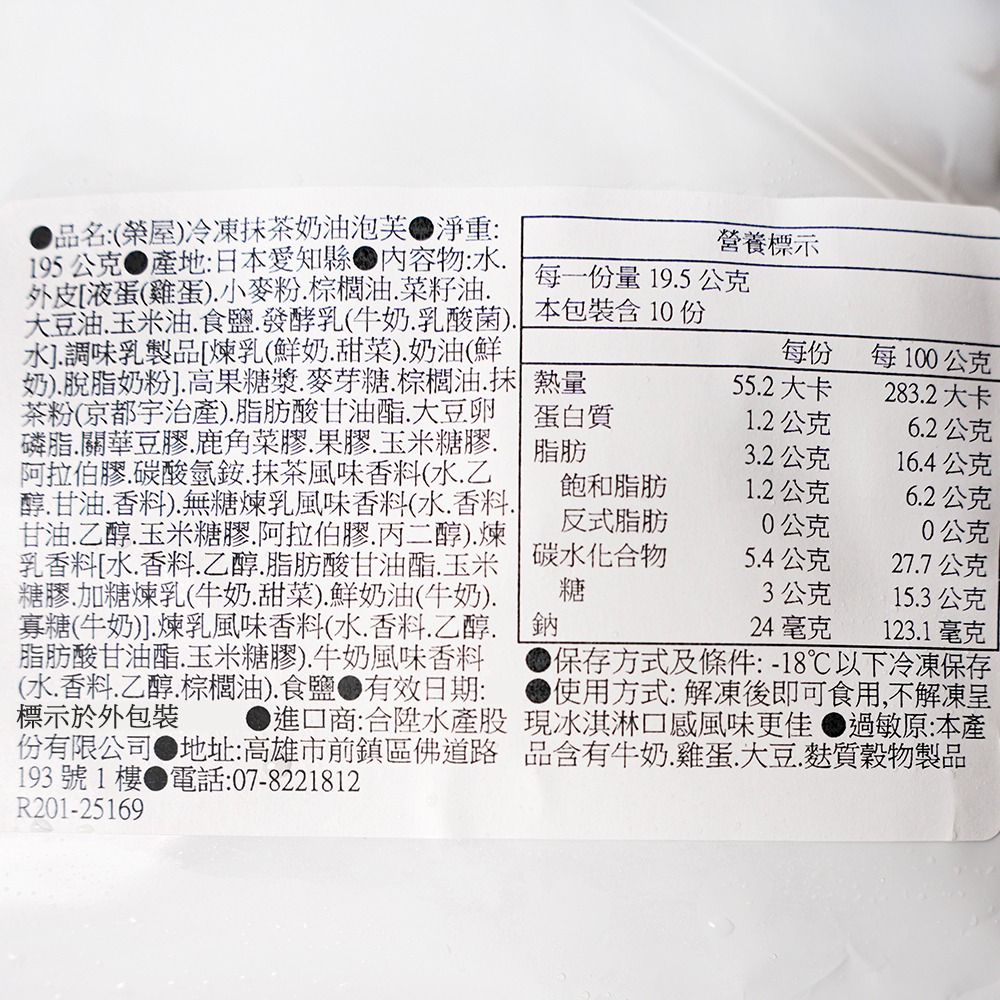 ●品名:(榮屋)冷凍抹茶奶油泡芙●淨重:
195 公克●產地:日本愛知縣●內容物:水.
外皮[液蛋(雞蛋).小麥粉.棕櫚油.菜籽油.
大豆油.玉米油.食鹽.發酵乳(牛奶.乳酸菌).
水].調味乳製品[煉乳(鮮奶.甜菜).奶油(鮮
奶).脫脂奶粉].高果糖漿.麥芽糖.棕櫚油.抹
茶粉(京都宇治產).脂肪酸甘油酯.大豆卵
磷脂.關華豆膠.鹿角菜膠.果膠.玉米糖膠.
阿拉伯膠.碳酸氫銨.抹茶風味香料(水.乙
醇.甘油.香料).無糖煉乳風味香料(水.香料.
甘油.乙醇.玉米糖膠.阿拉伯膠.丙二醇).煉
乳香料[水.香料.乙醇.脂肪酸甘油酯.玉米
糖膠.加糖煉乳(牛奶.甜菜).鮮奶油(牛奶).
寡糖(牛奶)].煉乳風味香料(水.香料.乙醇.
脂肪酸甘油酯.玉米糖膠).牛奶風味香料
(水.香料.乙醇.棕櫚油).食鹽●有效日期:
標示於外包裝 ●進口商:合陞水產股
份有限公司●地址:高雄市前鎮區佛道路
193 號 1 樓●電話:07-8221812
R201-25169
營養標示
每一份量 19.5 公克
本包裝含 10 份
每份 每 100 公克
熱量 55.2 大卡 283.2 大卡
蛋白質 1.2 公克 6.2 公克
脂肪 3.2 公克 16.4 公克
飽和脂肪 1.2 公克 6.2 公克
反式脂肪 0 公克 0 公克
碳水化合物 5.4 公克 27.7 公克
糖 3 公克 15.3 公克
鈉 24 毫克 123.1 毫克
●保存方式及條件: -18℃以下冷凍保存
●使用方式: 解凍後即可食用,不解凍呈
現冰淇淋口感風味更佳 ●過敏原:本產
品含有牛奶.雞蛋.大豆.麩質穀物製品